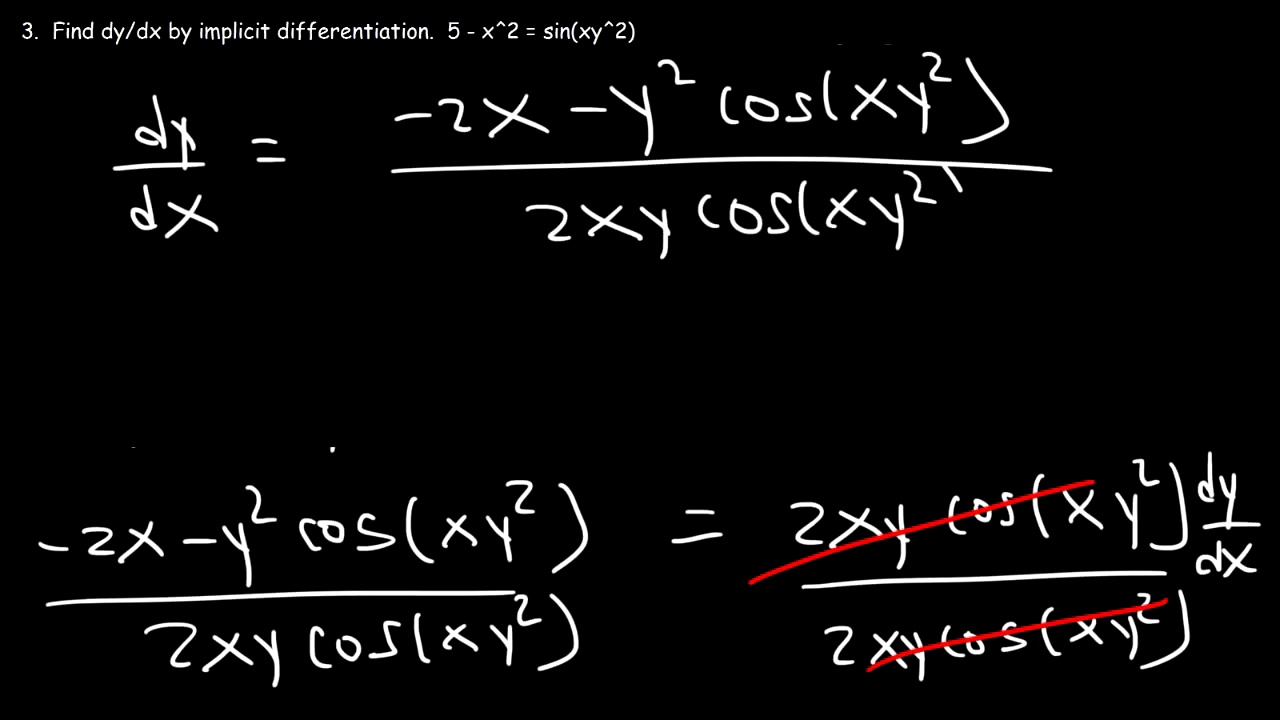 3. Find dy/dx by implicit differentiation. 5 - x^2 = sin(xy^2)
dy/dx = (-2x - y² cos(xy²)) / (2xy cos(xy²))
(-2x - y² cos(xy²)) / (2xy cos(xy²)) = (2xy cos(xy²) dy/dx) / (2xy cos(xy²))